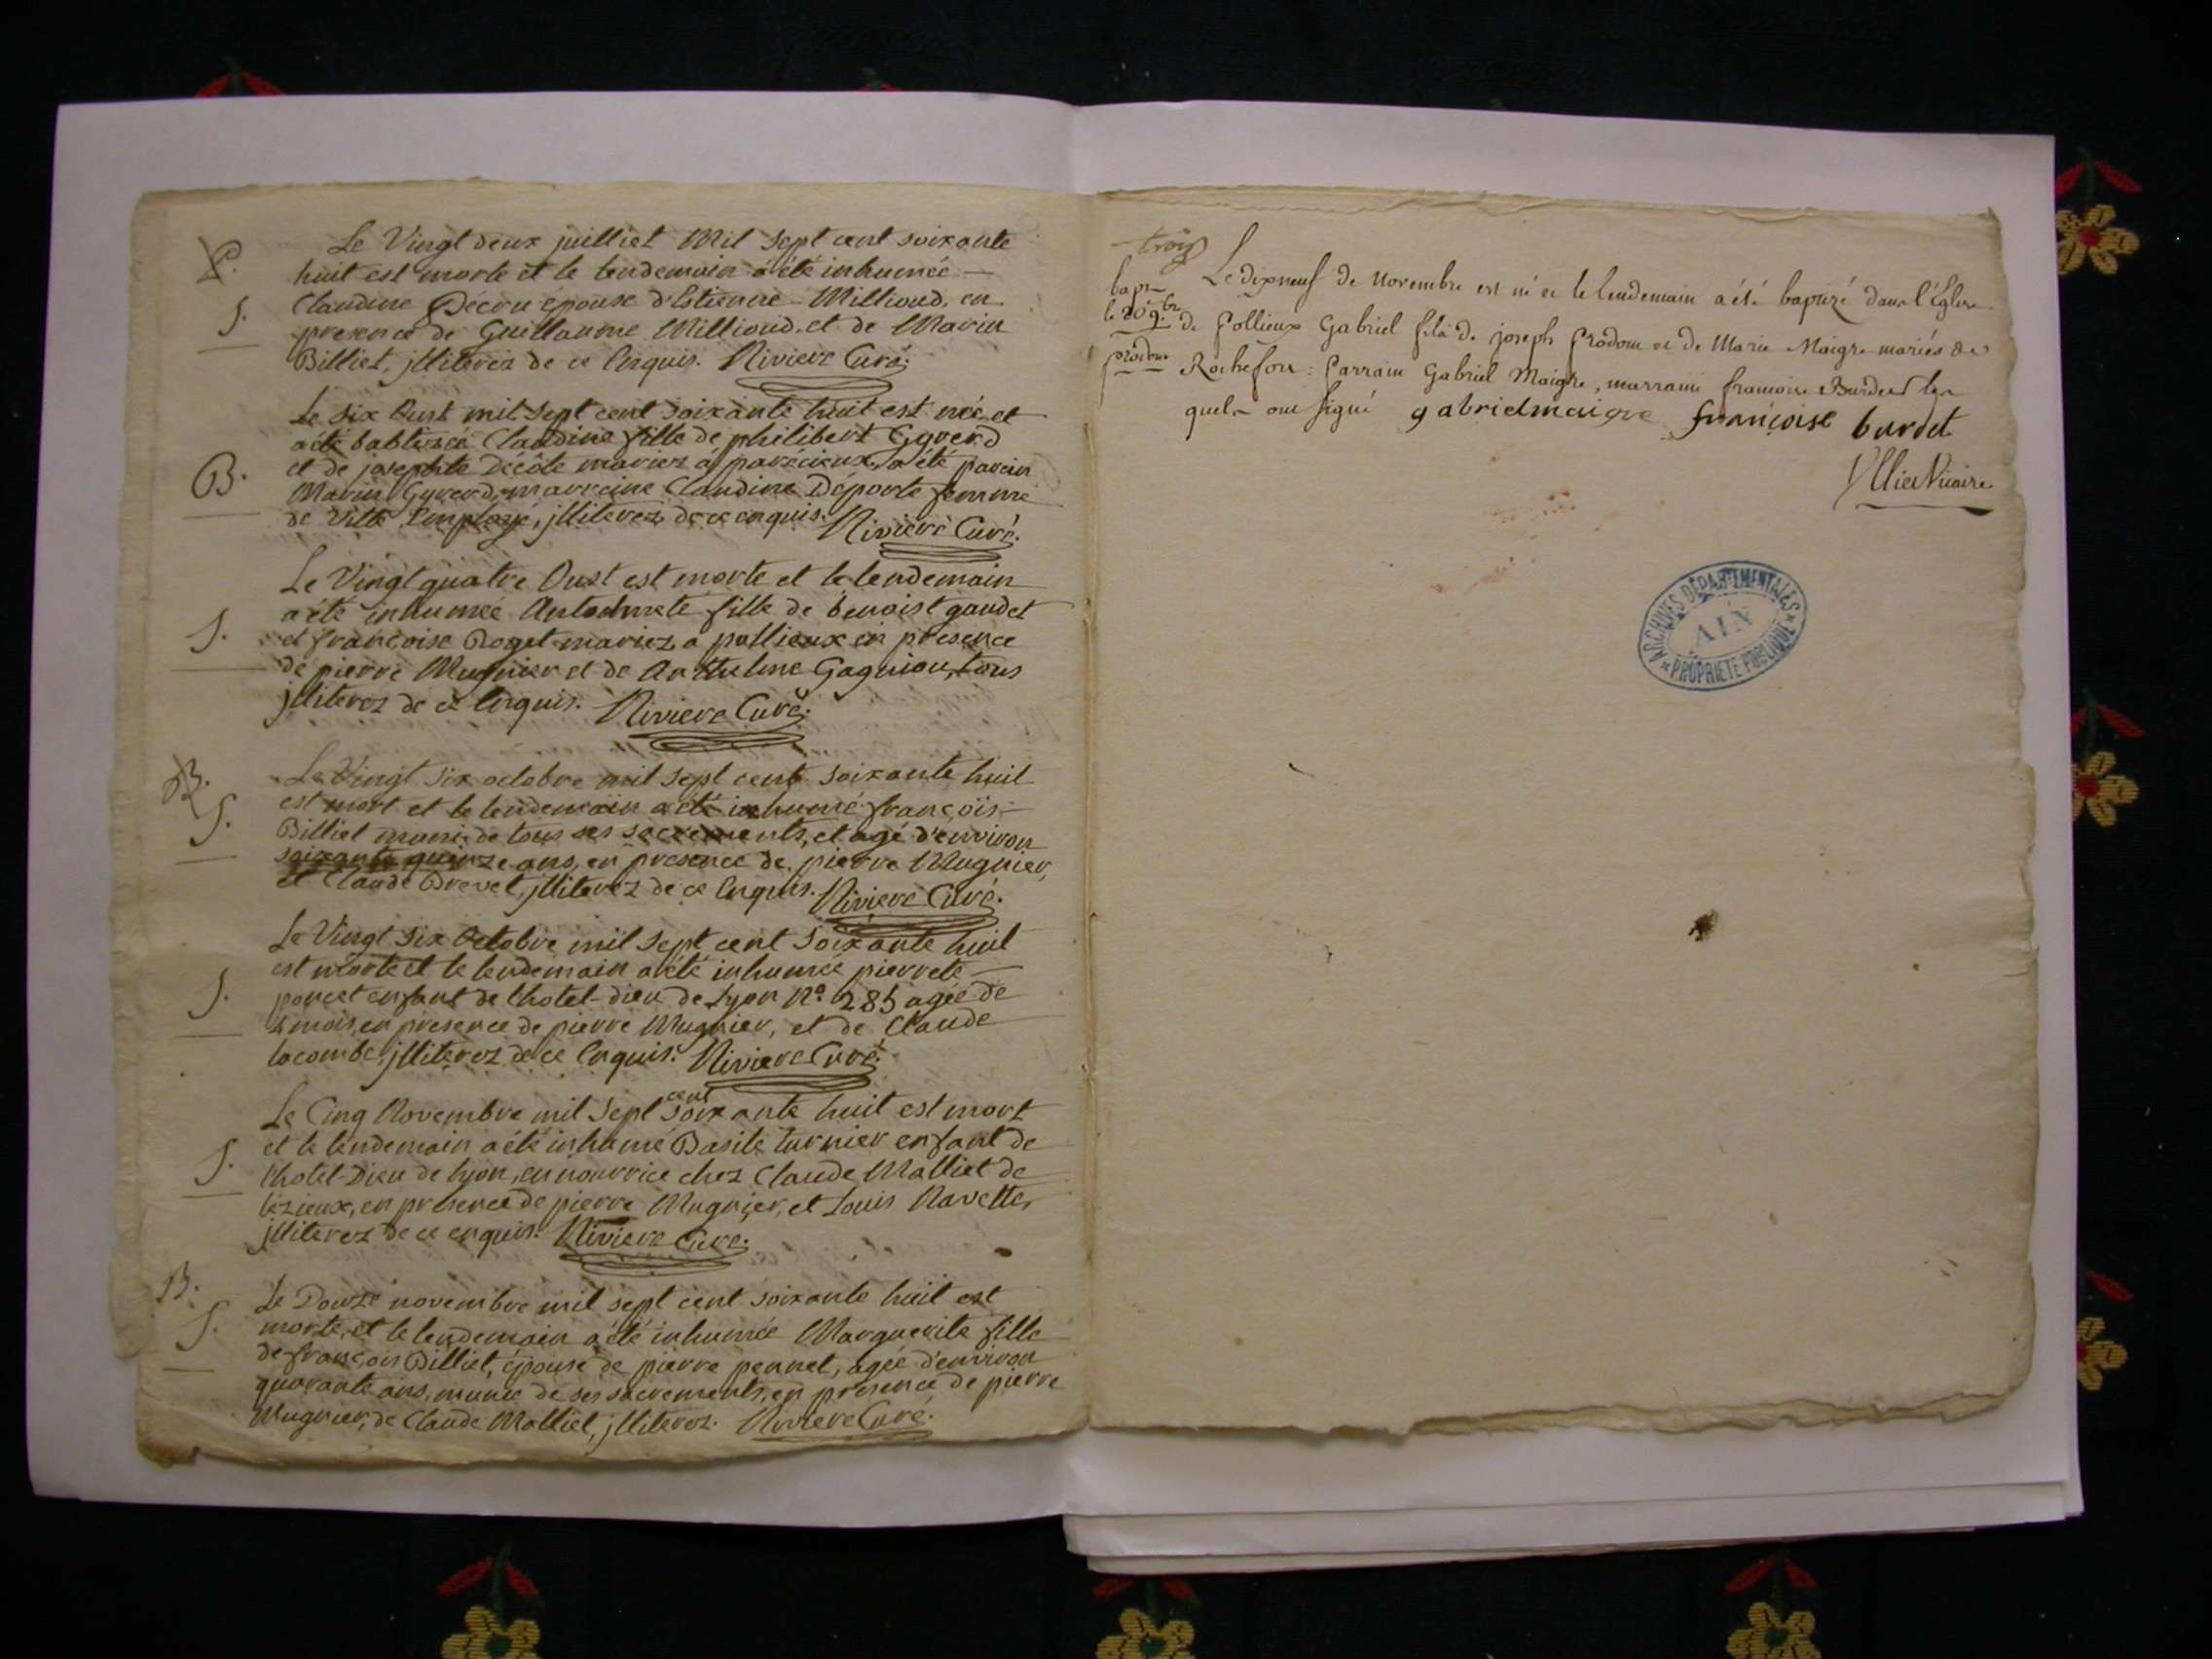 P.
Le Vingt deux juilliet Mil Sept cent soixante
huit est morte et le lendemain a été inhumée
S.
Claudine Decru épouse d'Estienne Millioud, en
presence de Guillaume Millioud, et de Marin
Billiet, jlliterez de ce Enquis. Riviere Curé.
Le six Oust mil sept cent soixante huit est née et
a été babtisée Claudine fille de philibert Gyverd
B.
et de josephte Décôte mariez à parécieux, a été parein
Marin Gyverd, marreine Claudine Déporte femme
de Ville Employé, jlliterez de ce enquis. Riviere Curé.
Le Vingt quatre Oust est morte et le lendemain
a été inhumée Antoinete fille de benoist gaudet
S.
et françoise Roget mariez a pollieux en presence
de pierre Mugnier et de Anthelme Gagniou, tous
jlliterez de ce Enquis. Riviere Curé.
B.
Le Vingt six octobre mil sept cent soixante huit
est mort et le lendemain a été inhumé françois
S.
Billiet muni de tous ses sacrements, et agé d'environ
soixante quinze ans, en presence de pierre Mugnier,
et Claude Drevet, jlliterez de ce Enquis. Riviere Curé.
Le Vingt Six Octobre mil sept cent soixante huit
est morte et le lendemain a été inhumée pierrete
S.
poncet enfant de l'hotel-dieu de Lyon No. 285 agée de
mois, en presence de pierre Mugnier, et de Claude
lacombe, jlliterez de ce Enquis. Riviere Curé.
Le Cinq Novembre mil Sept cent soixante huit est mort
et le lendemain a été inhumé Basile turnier enfant de
S.
l'hotel-Dieu de lyon, en nourrice chez Claude Malliet de
lézieux, en présence de pierre Mugnier, et Louis Navette,
jlliterez de ce enquis. Riviere Curé.
B.
Le Douze novembre mil sept cent soixante huit est
S.
morte, et le lendemain a été inhumée Marguerite fille
de françois Billiet, épouse de pierre pennet, agée d'environ
quarante ans, munie de ses sacrements, en presence de pierre
Mugnier, de Claude Malliet, jlliterez. Riviere Curé.
trois
bapt.
le 20 9.bre
prodon
Le dixneuf de Novembre est né et le lendemain a été baptizé dans l'Eglise
de Pollieux Gabriel fils de joseph Prodom et de Marie Maigre mariés de
Rochefort: Parrain Gabriel Maigre, marraine francoise Burdet les
quels ont signé gabriel maigre françoise burdet
Vicaire
ARCHIVES DÉPARTEMENTALES
AIN
PROPRIÉTÉ PUBLIQUE